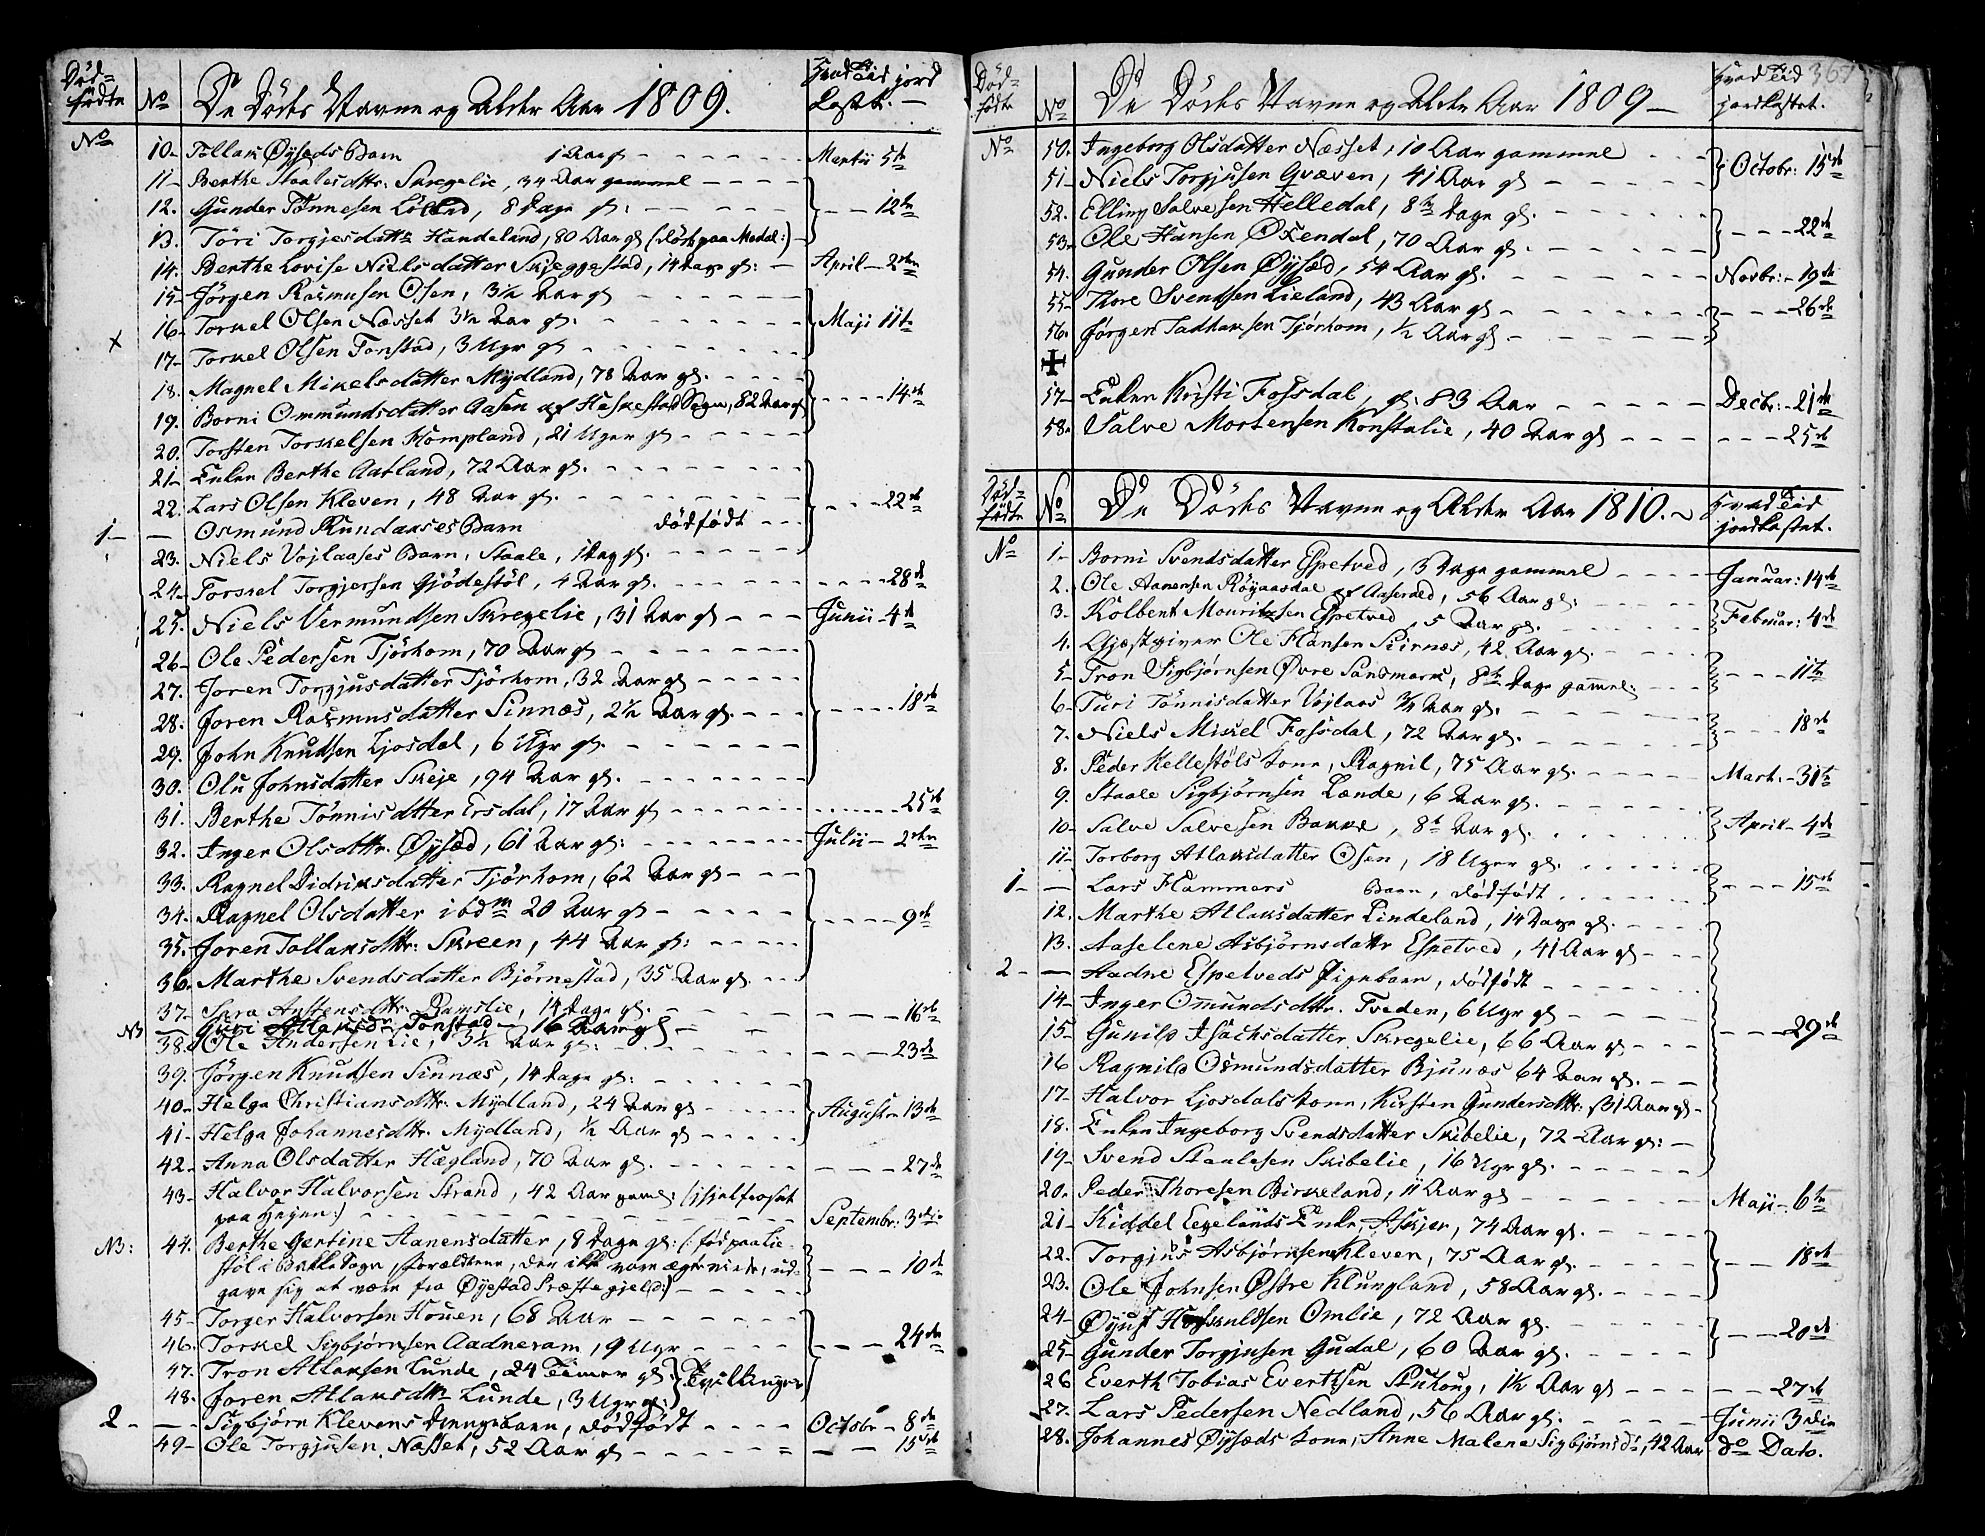 Död=
födte
No
De Dödes Navne og Alder Aar 1809.
Hvad Tid jord
kast: —
No
10- Tollak Øyseds Barn 1 Aar gl Martii 5te
11- Berthe Staalesdttr: Skregelie, 34 Aar gammel
12. Gunder Tönnesen, 8 Dage gl: 12te
13. Töri Torgjesdattr Handeland, 80 Aar gl (död paa Modal:)
14. Berthe Lovise Nielsdatter Skjeggestad, 14 Dage gl: April 2den
15- Jörgen Rasmusen Osen, 3½ Aar gl
16- Torkel Olsen Næsset 3½ Aar gl. Maji 11te
x
17- Torkel Olsen Tonstad, 3 Ugr gl
18. Magnel Mikelsdatter Mydland, 78 Aar gl.
19. Borni Ommundsdatter Aasen af Heskestad Sogn, 82 Aar gl 14de
20. Torsten Torkelsen Kompland, 21 Uger gl
21- Enken Berthe Aatland, 72 Aar gl.
22. Lars Olsen Kleven, 48 Aar gl. 22de
1- — Osmund Rundaases Barn dödfödt
23. Niels Vojlaases Barn, Staale, 1 Dag gl.
24- Torkel Torgjersen Gjödestöl, 4 Aar gl. 28de
25. Niels Vermundsen Skregelie, 31 Aar gl Junii 4de
26- Ole Pedersen Tjörhom, 70 Aar gl
27. Joren Torgjusdatter Tjörhom, 32 Aar gl
28. Joren Rasmusdatter Sinnæs, 2½ Aar gl. 18de
29. John Knudsen Ljosdal, 6 Ugr gl.
30. Olu Johnsdatter Skeje, 94 Aar gl.
31. Berthe Tönnisdatter Ersdal, 17 Aar gl 25de
32. Inger Olsdttr. Øysæd, 61 Aar gl: Julii 2den
33. Ragnel Didriksdatter Tjörhom, 62 Aar gl
34. Ragnel Olsdatter ibdm 20 Aar gl 9de
35. Joren Tollaksdttr: Skreen, 44 Aar gl:
36. Marthe Svendsdatter Bjørnestad, 35 Aar gl.
37- Sara Austensdttr. Ramslie, 14 Dage gl. 16de
NB — Guri Atlaksdr Tonstad — 16 Aar gl
38. Ole Andersen Lie, 3½ Aar gl: 23de
39. Jörgen Knudsen Sinnæs, 14 Dage gl:
40- Helga Christiansdttr. Mydland, 24 Aar gl August 13de
41- Helga Johannesdttr. Mydland, ½ Aar gl
42- Anna Olsdatter Hægland, 70 Aar gl. 27de
43- Halvor Halvorsen Strand, 42 Aar gaml: (ihjelfrosset
paa Hejen:) Septembr: 3die
NB: 44. Berthe Gertine Aanensdatter, 8 Dage gl: (: föd paa Lie
stöl i Bakke Sogn, forældrene, der ikke vare ægteviede, ud-
gave sig at være fra Øyestad Præstegjeld:) 10de
45- Torger Halvorsen Houen, 68 Aar
46- Torkel Sigbjørnsen Aadneram, 9 Ugr 24de
47. Tron Atlaksen Lunde, 24 Timer gl. } Tvillinger
48. Joren Atlaksdttr Lunde, 3 Ugr gl:
2- — Sigbjörn Klevens Drengebarn, dödfödt Octobr 8de
49- Ole Torgjusen Næsset, 52 Aar gl 15de
Död=
födte
No
De Dödes Navne og Alder Aar 1809 —
Hvad Tid
jordkastet.
367
No
50. Ingeborg Olsdatter Næsset, 10 Aar gammel
51- Niels Torgjusen Qvæven, 41 Aar gl Octobr: 15de
52. Elling Salvesen Helledal, 8te Dage gl.
53- Ole Hansen Øxendal, 70 Aar gl. 22de
54. Gunder Olsen Øysæd, 54 Aar gl. Novbr: 19de
55- Thore Svendsen Lieland, 43 Aar gl 26de
56. Jörgen Sadhansen Tjörhom, ½ Aar gl
57- Enken Kristi Fossdal, gl: 83 Aar Decbr: 21de
58. Salve Mortensen Konstalie, 40 Aar gl 25de
Död=
födte
No
De Dödes Navne og Alder Aar 1810.
Hvad Tid
jordkastet.
No
1- Borni Svendsdatter Espetved, 3 Dage gammel Januar: 14de
2. Ole Aanensen Röjaasdal af Aaserald, 56 Aar gl:
3. Kolbent Mouritzsen Espetved, 5 Aar gl. Februar: 4de
4. Gjæstgiver Ole Hansen Siirnæs, 42 Aar gl.
5- Tron Sigbjørnsen Øvre Sandmark, 8te Dage gammel: 11te
6- Turi Tönnisdatter Vojlaas ¾ Aar gl.
7. Niels Mikel Fossdal, 72 Aar gl. 18de
8. Peder Kellestöls Kone, Ragnil, 75 Aar gl. Mart: 31te
9. Staale Sigbjörnsen Lænde, 6 Aar gl.
10- Salve Salvesen Bakke, 8te Aar gl. April 4de
11- Torborg Atlaksdatter Osen, 18 Uger gl.
1- — Lars Hammers Barn, dödfödt 15de
12. Marthe Atlaksdatter Lindeland, 14 Dage gl.
13. Aaselene Asbjörnsdattr Espetved, 41 Aar gl
2- — Aadne Espetveds Pigebarn, dödfödt
14- Inger Omundsdttr. Tveden, 6 Ugr gl
15- Gunild Isachsdatter Skregelie, 66 Aar gl 29de
16 Ragnild Osmundsdatter Bjunæs 64 Aar gl.
17- Halvor Ljosdals Kone, Kirsten Gundersdttr. 31 Aar gl
18. Enken Ingeborg Svendsdatter Skibelie, 72 Aar gl:
19- Svend Staalesen Skibelie, 16 Ugr gl.
20. Peder Thoresen Birkeland, 11 Aar gl Maji 6te
21- Kiddel Egelands Enke, Askjer, 74 Aar gl.
22. Torgjus Asbjörnsen Kleven, 75 Aar gl. 18de
23. Ole Johnsen Östre Klungland, 58 Aar gl.
24- Øjuf Hoskuldsen Omlie, 72 Aar gl. 20de
25- Gunder Torgjusen Gudal, 60 Aar gl.
26 Everth Tobias Evertsen, 1½ Aar gl 27de
27. Lars Pedersen Nedland, 56 Aar gl. Junii 3die
28. Johannes Øysæds Kone, Anne Malene Sigbjörnsdr, 42 Aar do Dato.